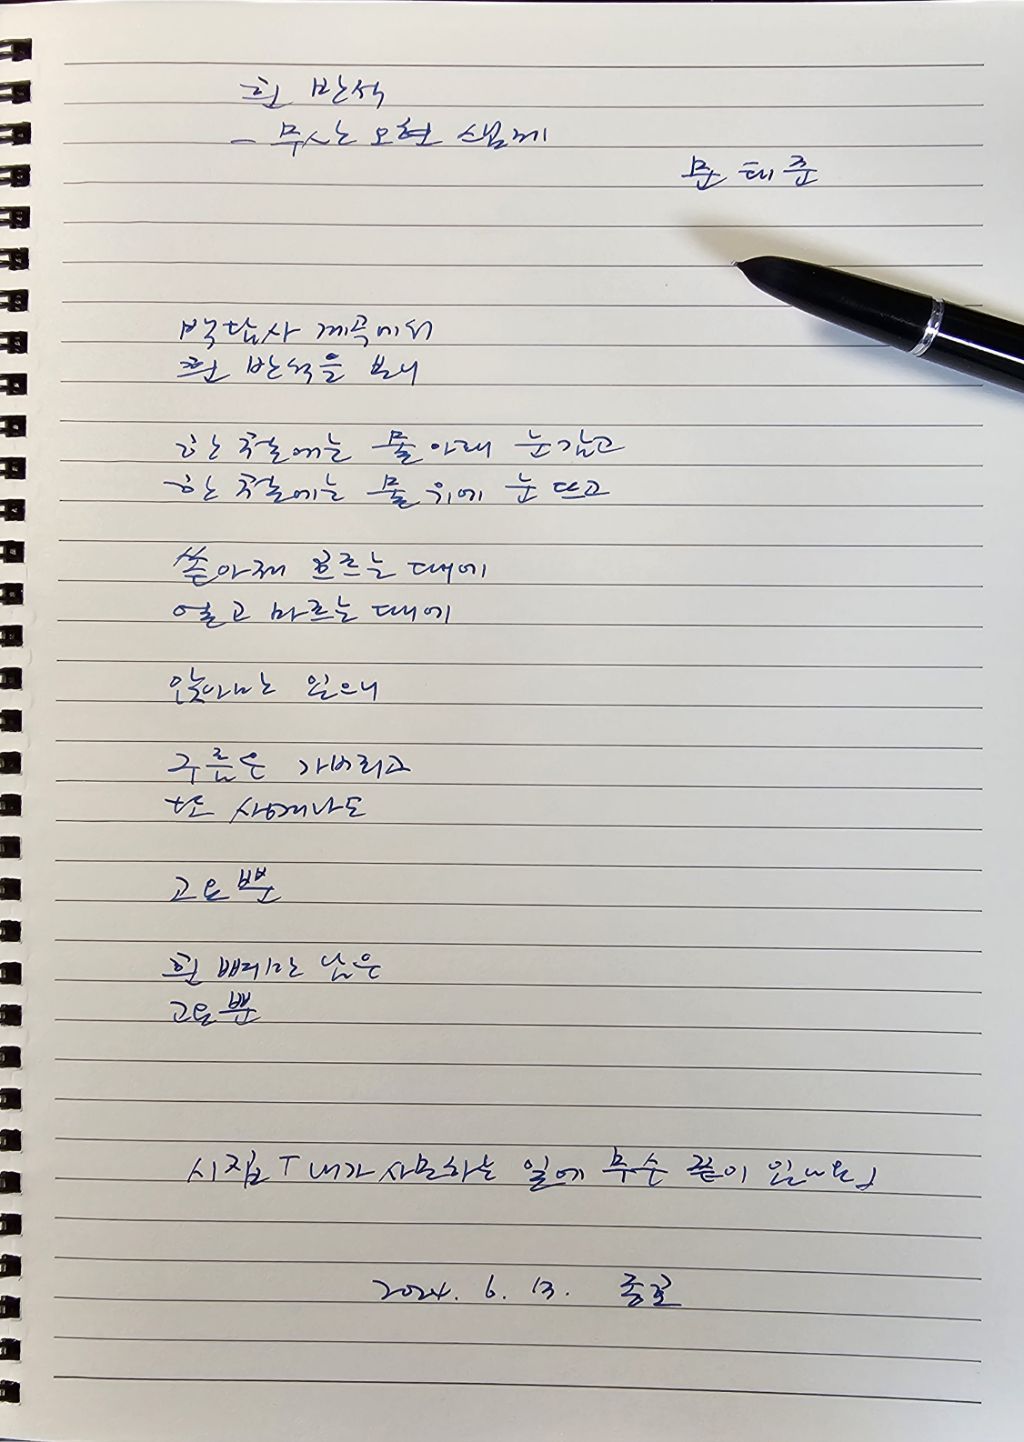 흰 반석
- 무산 오현 스님께
문태준
백담사 계곡에서
흰 반석을 보니
한 철에는 물 아래 눈감고
한 철에는 물 위에 눈 뜨고
쏟아져 흐르는 때에
얼고 마르는 때에
앉아만 있으니
구름은 가버리고
또 사예나도
고요뿐
흰 뼈만 남은
고요뿐
시집 「내가 사모하는 일에 무슨 끝이 있나요」
2024. 6. 13.